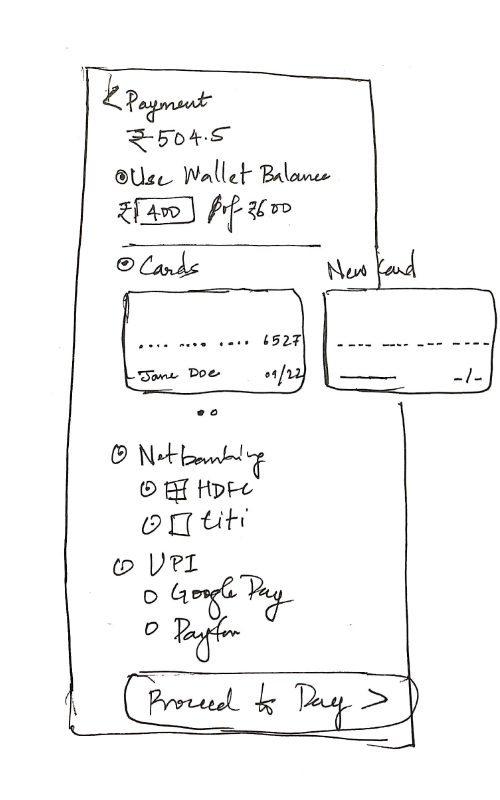 < Payment
₹504.5
Use Wallet Balance
₹ 400 of ₹600
Cards
New Card
.... .... .... 6527
Jane Doe 09/22
---- ---- --- ----
-/-
Netbanking
HDFC
Citi
UPI
Google Pay
Paytm
Proceed to Pay >